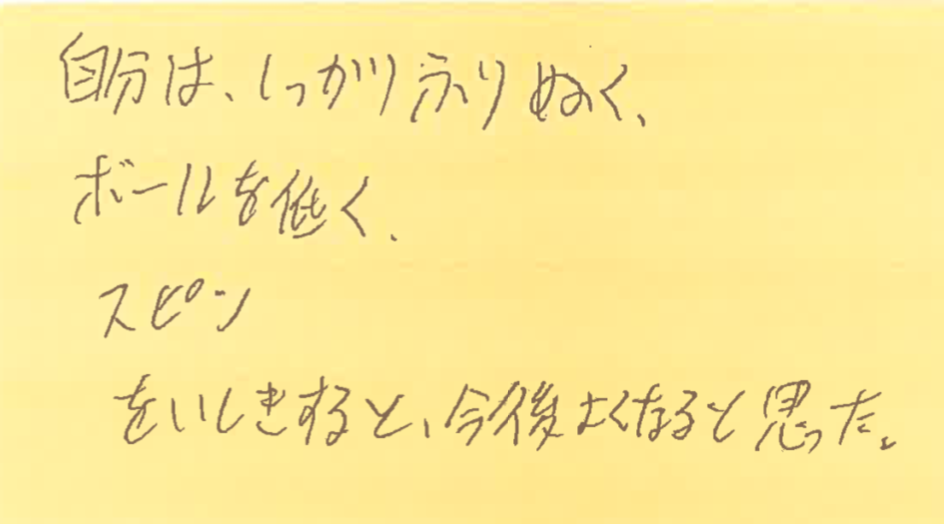 自分は、しっかりふりぬく、
ボールを低く、
スピン
をいしきすると、今後よくなると思った。